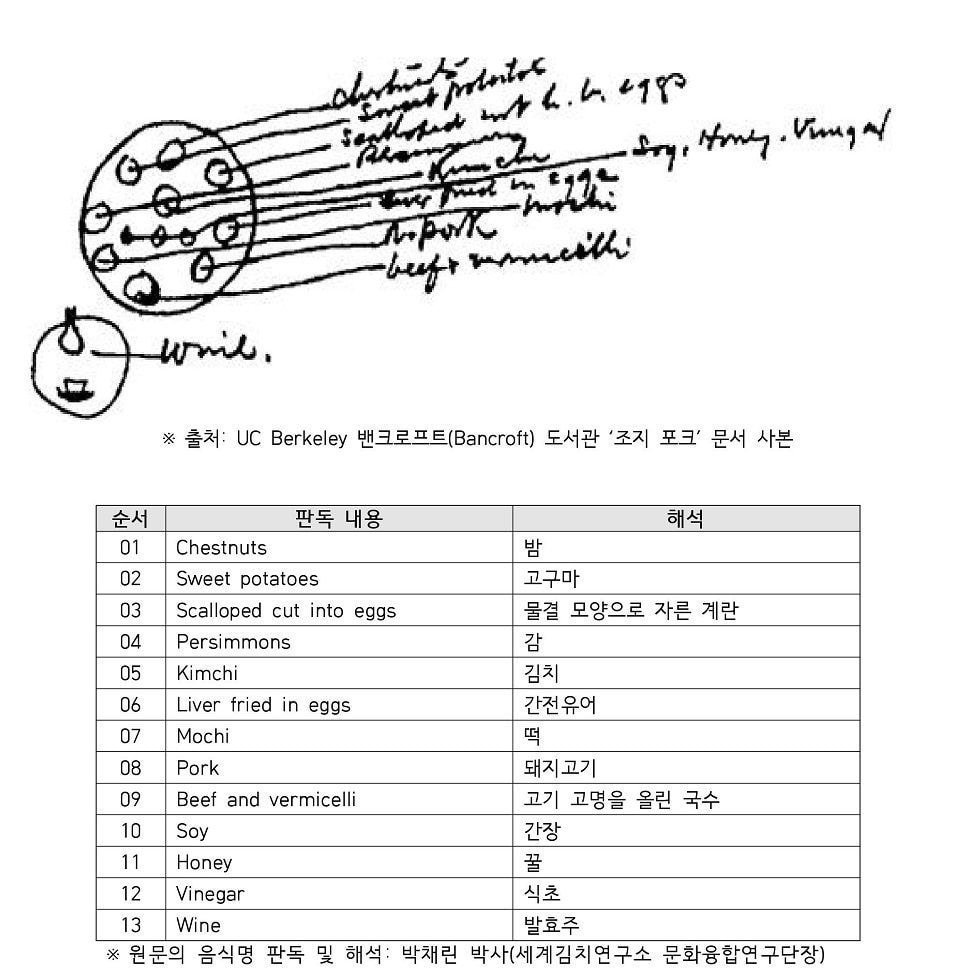 chestnuts
Sweet potatoes
scalloped cut in eggs
Persimmons
Soy, Honey, Vinegar
Kimchi
Liver fried in eggs
mochi
pork
beef & vermicelli
Wine.
※ 출처: UC Berkeley 밴크로프트(Bancroft) 도서관 ‘조지 포크’ 문서 사본
순서 판독 내용 해석
01 Chestnuts 밤
02 Sweet potatoes 고구마
03 Scalloped cut into eggs 물결 모양으로 자른 계란
04 Persimmons 감
05 Kimchi 김치
06 Liver fried in eggs 간전유어
07 Mochi 떡
08 Pork 돼지고기
09 Beef and vermicelli 고기 고명을 올린 국수
10 Soy 간장
11 Honey 꿀
12 Vinegar 식초
13 Wine 발효주
※ 원문의 음식명 판독 및 해석: 박채린 박사(세계김치연구소 문화융합연구단장)